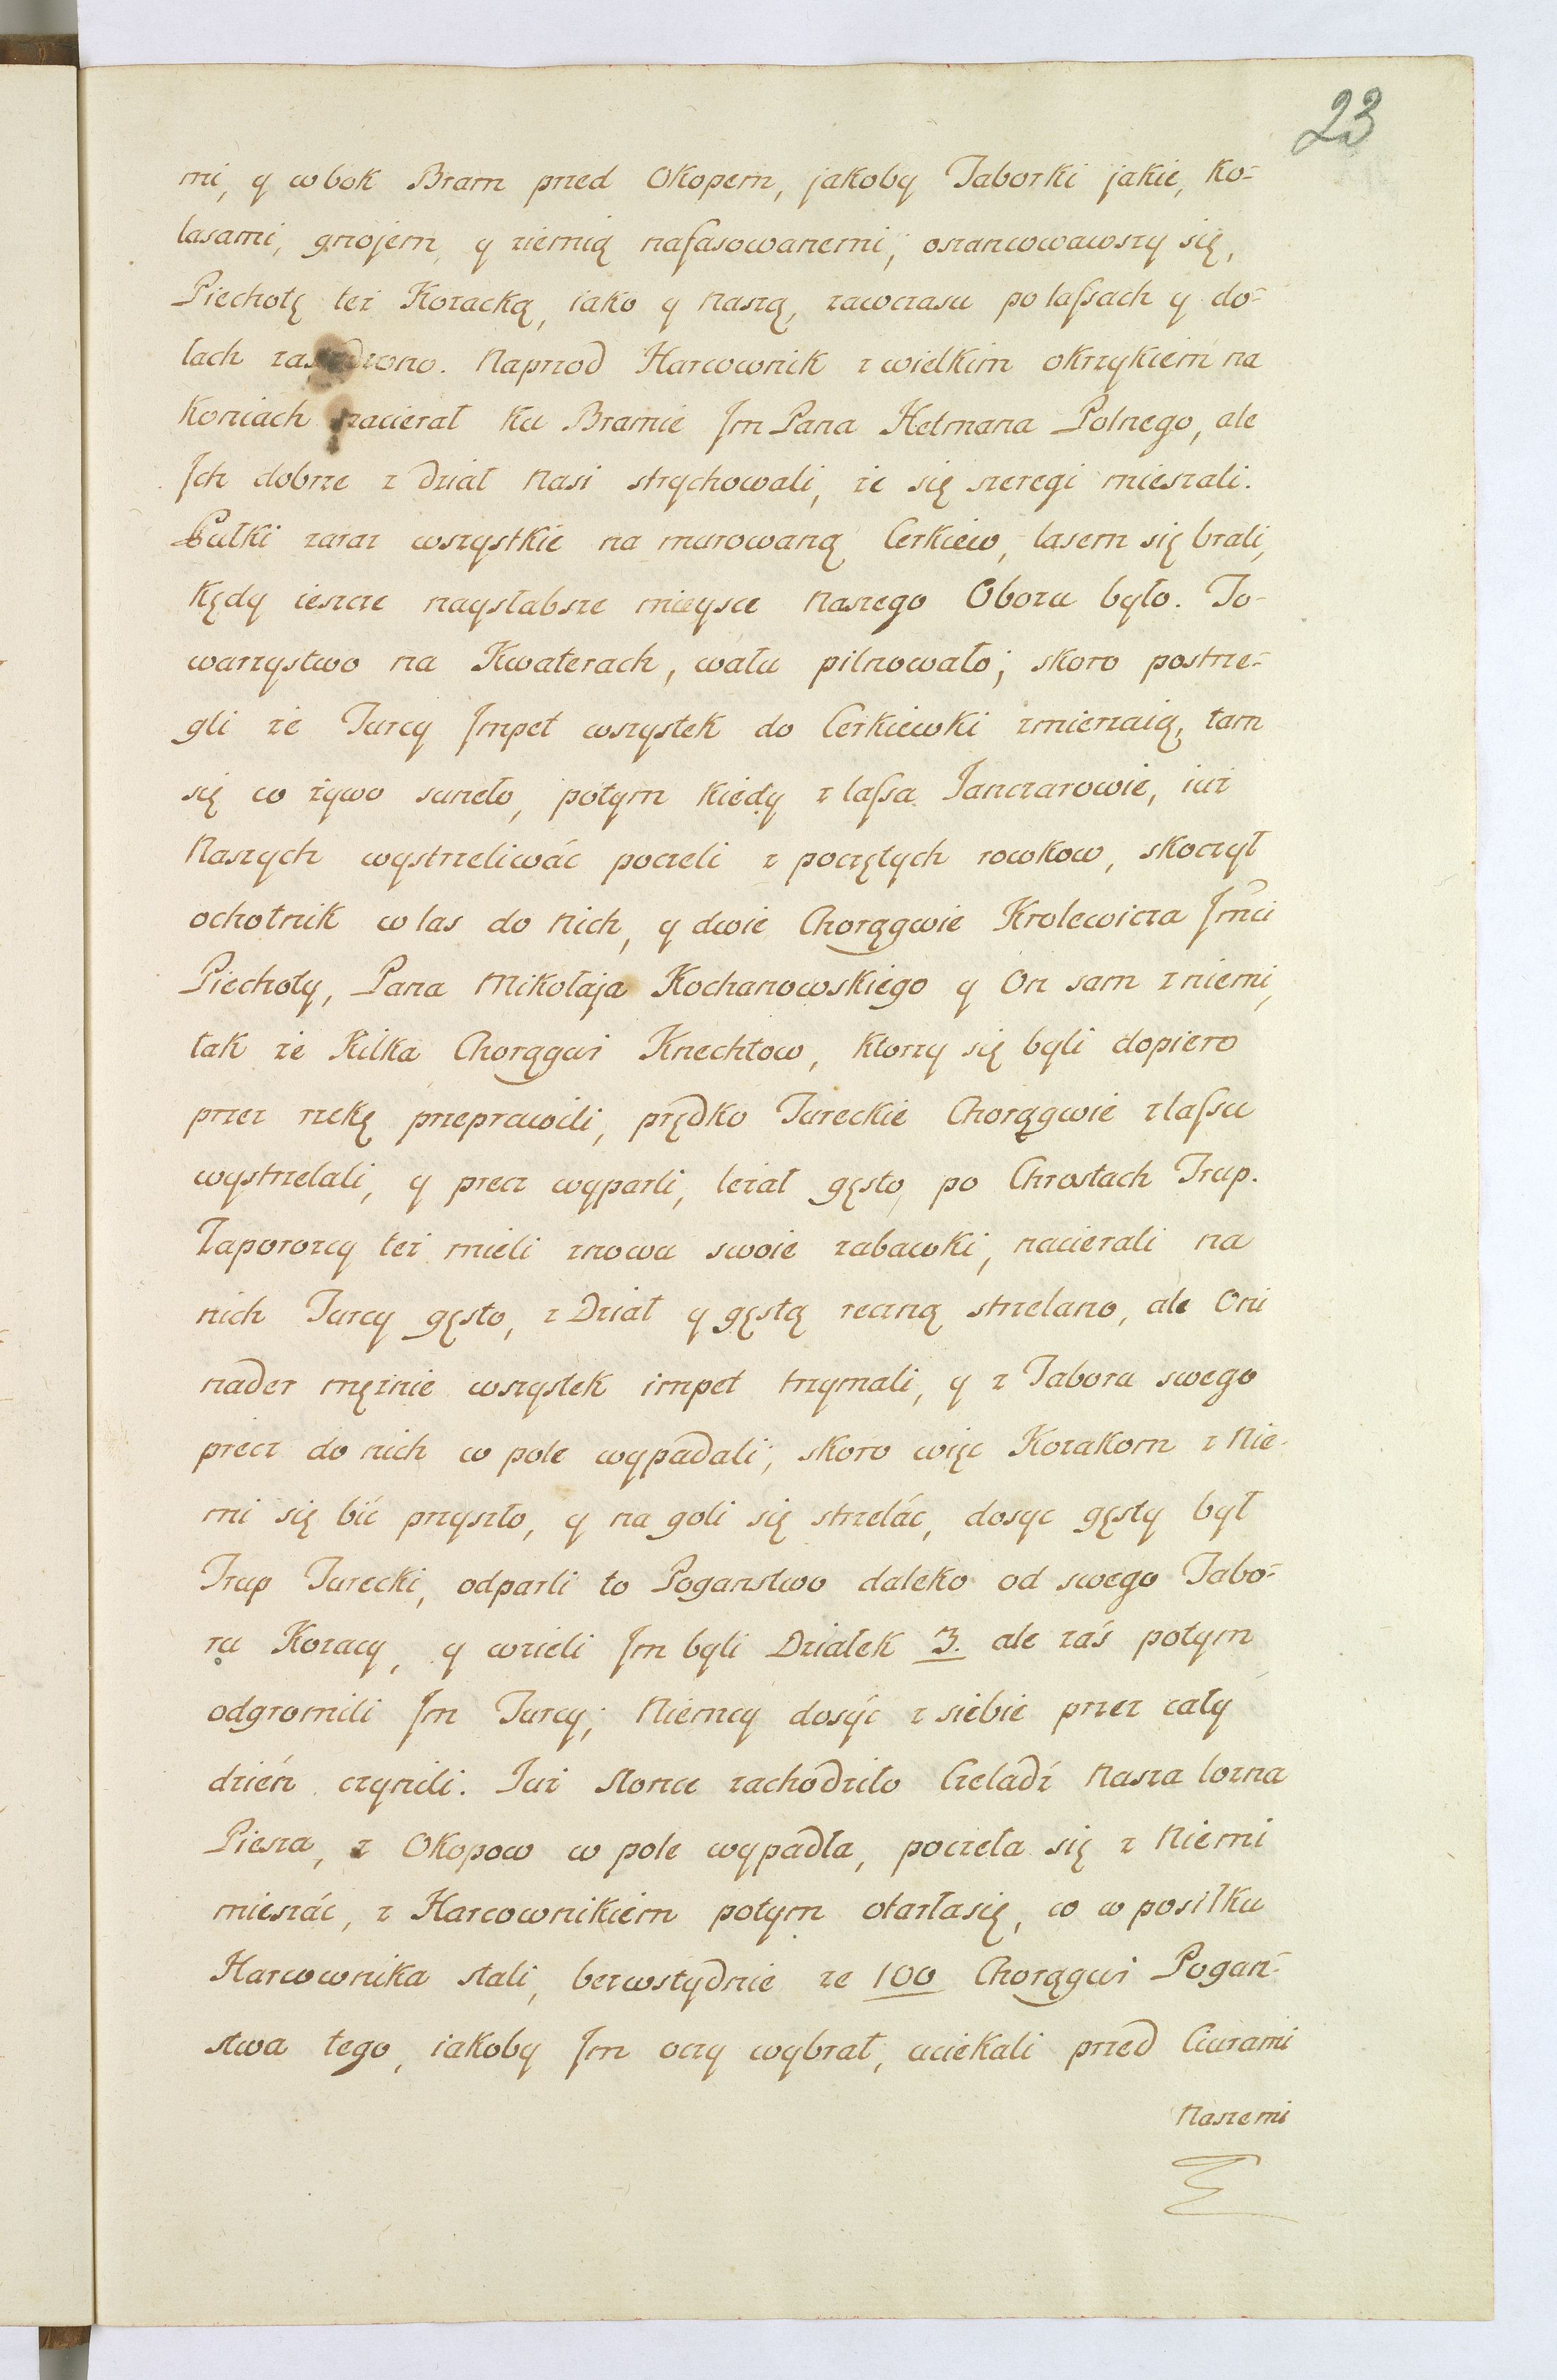 23
mi, y w bok Bram przed Okopem, jakoby Taborki jakie, ko-
lasami, gnojem y ziemią nafasowanemi, oszancowawszy się,
Piechotę też Kozacką, iako y Naszą, zawczasu po lassach y do-
łach zasadzono. Naprzod Harcownik z wielkim okrzykiem na
Koniach nacierał ku Bramie Jm Pana Hetmana Polnego, ale
Ich dobrze z dział Nasi strychowali, że się szeregi mieszali.
Pułki zaraz wszystkie na murowaną Cerkiew, lasem się brali,
Kędy ieszcze naysłabsze mieysce Naszego Obozu było. To-
warzystwo na Kwaterach, wału pilnowało; skoro postrze-
gli że Turcy Jmpet wszystek do Cerkiewki zmierzaią, tam
się co żywo suneło, potym kiedy z lassa Janczarowie, iuż
Naszych wystrzeliwać poczeli z poczętych rowkow, skoczył
ochotnik w las do Nich, y dwie Chorągwie Krolewicza Jmci
Piechoty, Pana Mikołaja Kochanowskiego y On sam z niemi,
tak że Kilka Chorągwi Knechtow, ktorzy się byli dopiero
przez rzekę przeprawili, prędko Tureckie Chorągwie z lassu
wystrzelali, y precz wyparli, leżał gęsto po Chrostach Trup.
Zaporozcy też mieli znowu swoie zabawki, nacierali na
nich Turcy gęsto, z Dział y gęstą ręczną strzelano, ale Oni
nader mężnie wszystek impet trzymali, y z Taboru swego
precz do nich w pole wypadali; skoro więc Kozakom z Nie-
mi się bić przyszło, y na goli się strzelać, dosyc gęsty był
Trup Turecki, odparli to Poganstwo daleko od swego Tabo-
ru Kozacy, y wzieli Jm byli Działek 3. ale zaś potym
odgromili Jm Turcy; Niemcy dosyć z siebie przez cały
dzień czynili. Już Słonce zachodziło Czeladź Nasza lozna
Piesza, z Okopow w pole wypadła, poczeła się z Niemi
mieszać, z Harcownikiem potym otarła się, co w posiłku
Harcownika stali, bezwstydnie ze 100 Chorągwi Pogan-
stwa tego, iakoby Jm oczy wybrał, uciekali przed Ciurami
Naszemi